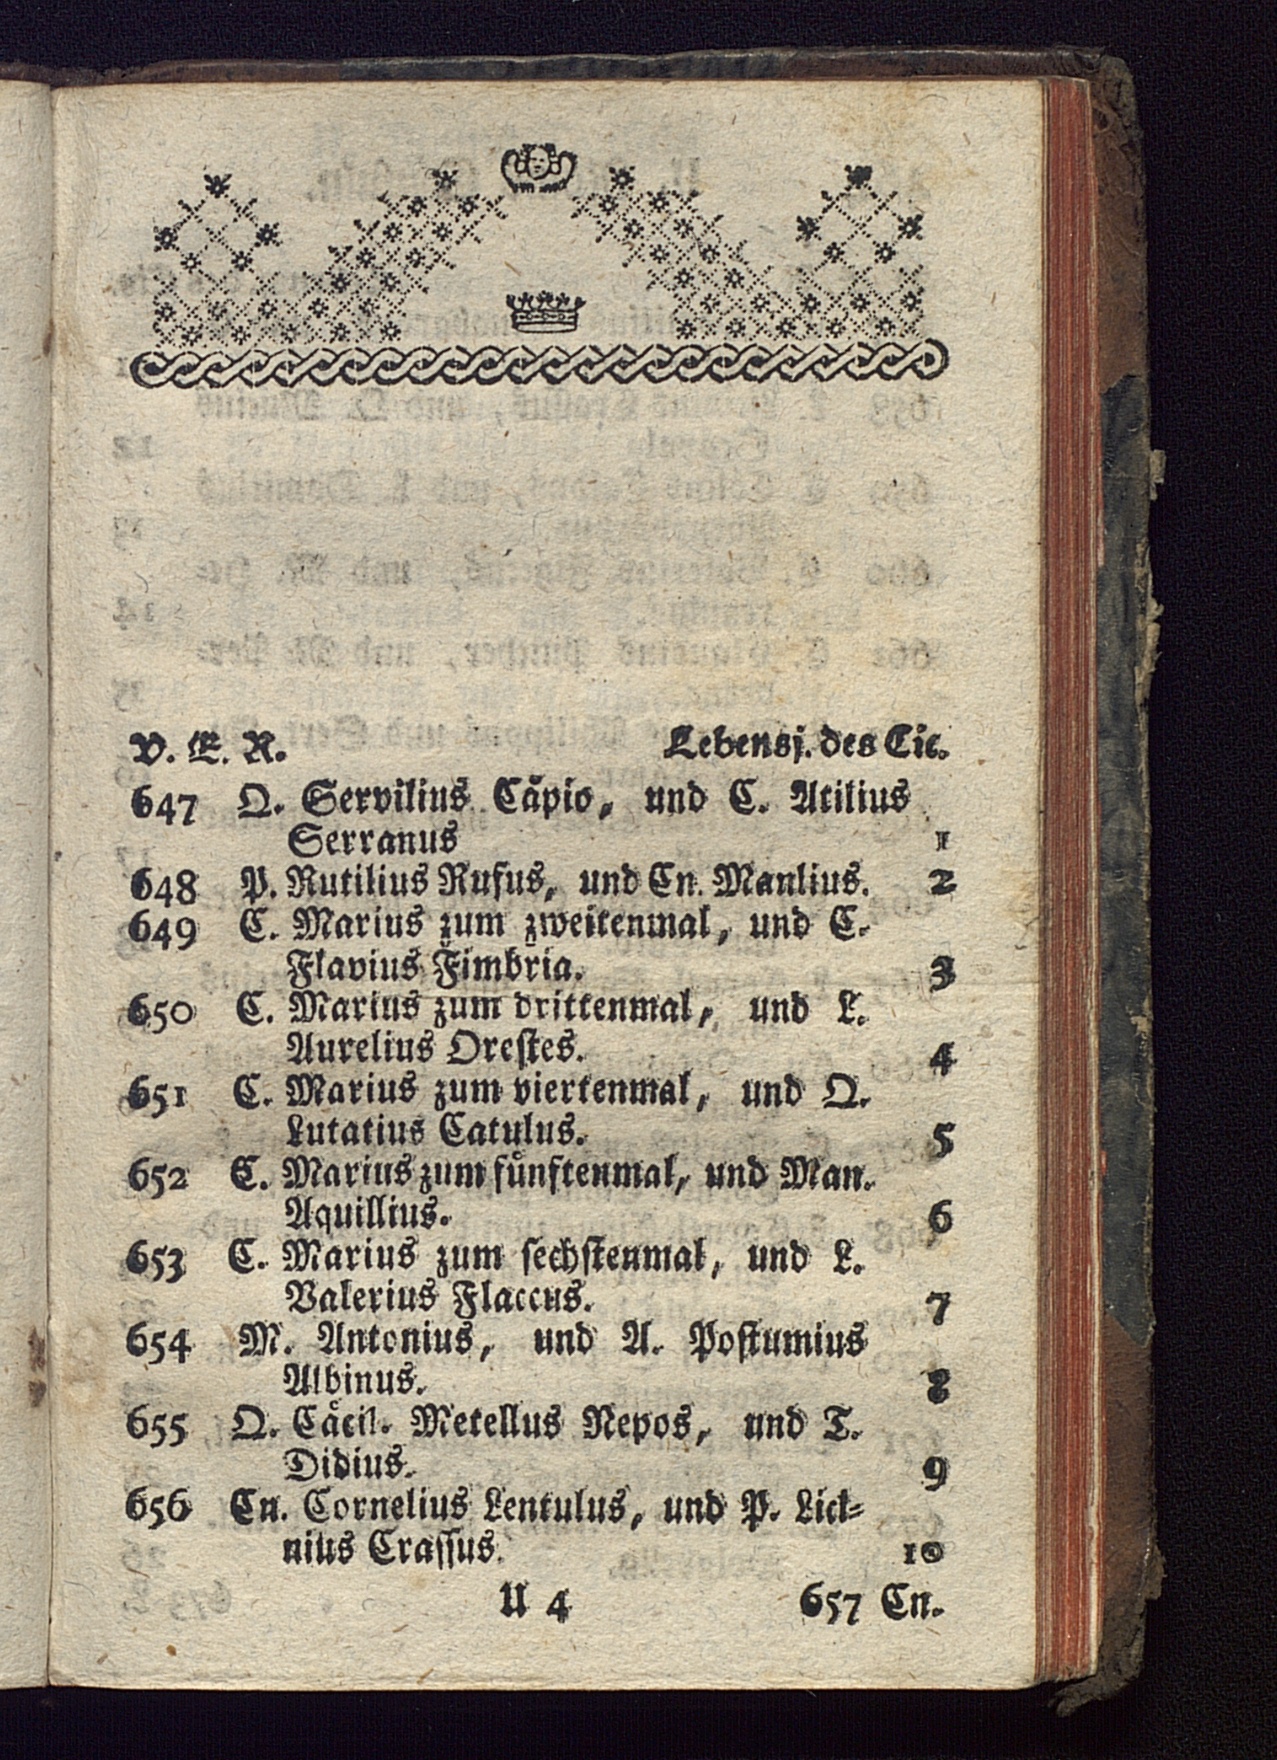 V. E. R. Lebensj. des Cic.
647 Q. Servilius Cäpio, und C. Atilius
Serranus 1
648 P. Rutilius Rufus, und Cn. Manlius. 2
649 C. Marius zum zweitenmal, und C.
Flavius Fimbria. 3
650 C. Marius zum drittenmal, und L.
Aurelius Orestes. 4
651 C. Marius zum viertenmal, und Q.
Lutatius Catulus. 5
652 C. Marius zum fünftenmal, und Man.
Aquillius. 6
653 C. Marius zum sechstenmal, und L.
Valerius Flaccus. 7
654 M. Antonius, und A. Postumius
Albinus. 8
655 Q. Cäcil. Metellus Nepos, und T.
Didius. 9
656 Cn. Cornelius Lentulus, und P. Lici-
nius Crassus. 10
U 4 657 Cn.